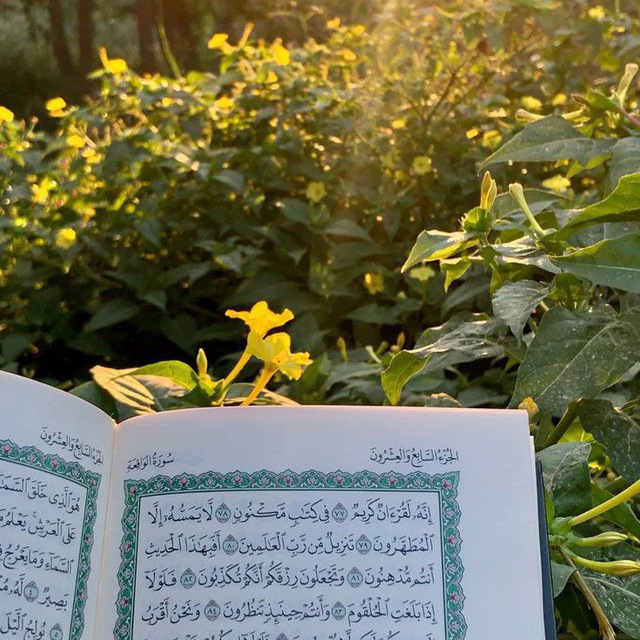 الجزء السابع والعشرون
سورة الواقعة
إِنَّهُۥ لَقُرْءَانٌ كَرِيمٌ ٧٧ فِى كِتَٰبٍ مَّكْنُونٍ ٧٨ لَّا يَمَسُّهُۥٓ إِلَّا
ٱلْمُطَهَّرُونَ ٧٩ تَنزِيلٌ مِّن رَّبِّ ٱلْعَٰلَمِينَ ٨٠ أَفَبِهَٰذَا ٱلْحَدِيثِ
أَنتُم مُّدْهِنُونَ ٨١ وَتَجْعَلُونَ رِزْقَكُمْ أَنَّكُمْ تُكَذِّبُونَ ٨٢ فَلَوْلَآ
إِذَا بَلَغَتِ ٱلْحُلْقُومَ ٨٣ وَأَنتُمْ حِينَئِذٍ تَنظُرُونَ ٨٤ وَنَحْنُ أَقْرَبُ
الجزء السابع والعشرون
هُوَ ٱلَّذِى خَلَقَ ٱلسَّمَٰ
عَلَى ٱلْعَرْشِ يَعْلَمُ
ٱلسَّمَآءِ وَمَا يَعْرُجُ
بَصِيرٌ ٤ لَّهُۥ
يُولِجُ ٱلَّيْلَ